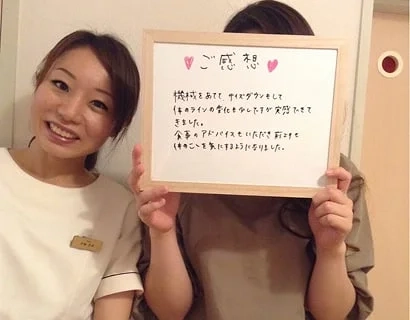 ご感想
機械をあてて サイズダウンもして
体のラインの変化も少しですが実感できて
きました。
食事のアドバイスもいただき 前よりも
体のことを気にするようになりました。